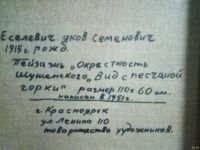 Еселевич яков семенович
1915 г. рожд.
Пейзажь „Окрестность
Шушенского „Вид с песчаной
горки" размер 110 х 60 см.
написан в 1951 г.
г. Красноярск
ул Ленина 110
товарищество художников.